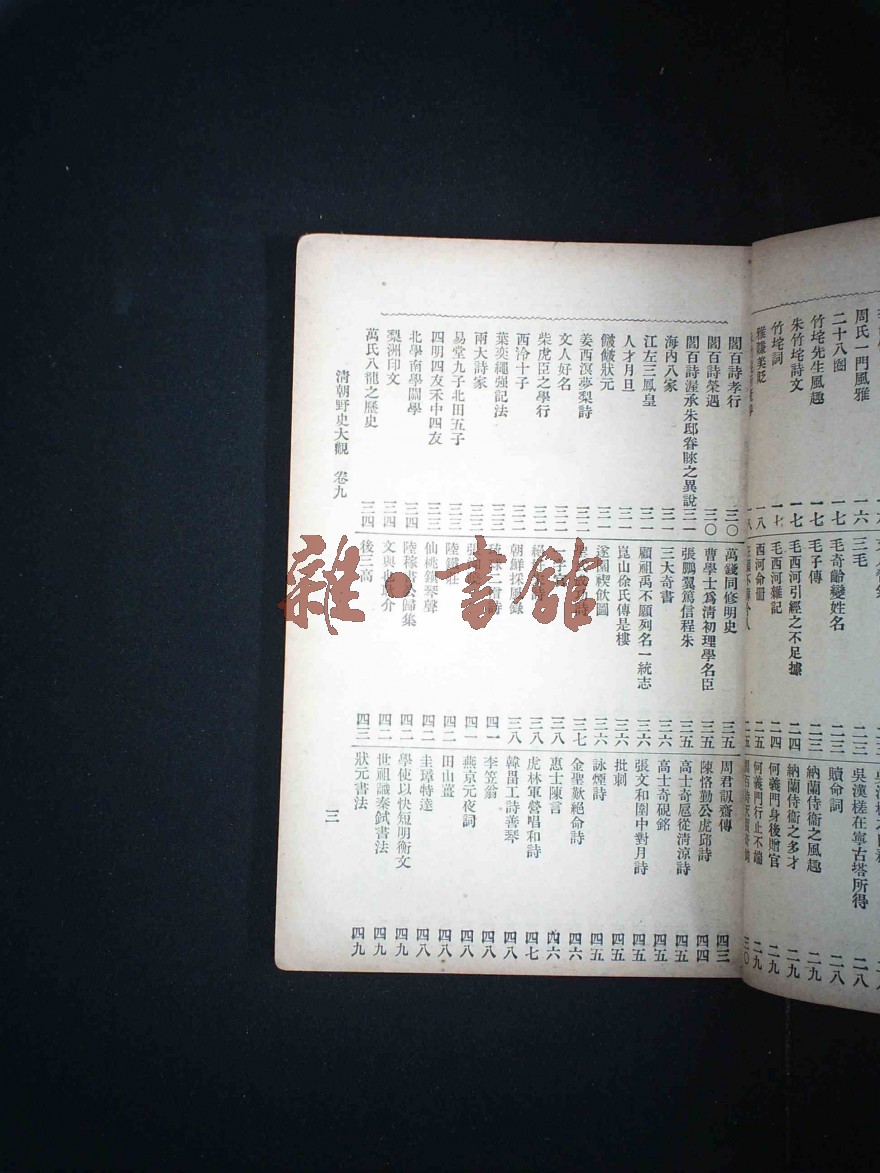 周氏一門風雅 一六
二十八圈 一七
竹垞先生風趣 一七
朱竹垞詩文 一七
竹垞詞 一七
雅謔美貶 一八
三毛 二三
毛奇齡變姓名 二三
毛子傳 二三
毛西河引經之不足據 二四
毛西河雜記 二四
西河命册 二五
吳漢槎在寧古塔所得 二八
贖命詞 二八
納蘭侍衞之風趣 二九
納蘭侍衞之多才 二九
何義門身後贈官 二九
何義門行止不端 二九
閻百詩孝行 三〇
閻百詩榮遇 三〇
閻百詩渥承朱邸眷睞之異說 三一
海內八家 三一
江左三鳳皇 三一
人才月旦 三一
皺皺狀元
姜西溟夢梨詩
文人好名 三二
柴虎臣之學行 三二
西泠十子
葉奕繩强記法 三三
兩大詩家 三三
易堂九子北田五子 三三
四明四友禾中四友 三三
北學南學關學 三四
梨洲印文 三四
萬氏八龍之歷史 三四
萬錢同修明史 三五
曹學士爲清初理學名臣 三五
張鵬翼篤信程朱 三五
三大奇書 三六
顧祖禹不願列名一統志 三六
崑山徐氏傳是樓 三六
遂園禊飲圖 三六
三七
三八
三八
朝鮮採風錄 三八
四一
四一
陸
莊 四二
仙桃鎮琴聲 四二
陸稼書
歸集 四二
文與也
介 四二
後三高 四三
周君訊齋傳 四三
陳恪勤公虎邱詩 四四
高士奇扈從清涼詩 四五
高士奇硯銘 四五
張文和圍中對月詩 四五
批刺 四五
詠煙詩 四五
金聖歎絕命詩 四六
惠士陳言 四六
虎林軍營唱和詩 四七
韓畕工詩善琴 四八
李笠翁 四八
燕京元夜詞 四八
田山薑 四八
圭璋特達 四八
學使以快短明衡文 四九
世祖識秦鉽書法 四九
狀元書法 四九
清朝野史大觀 卷九 三
雜·書館